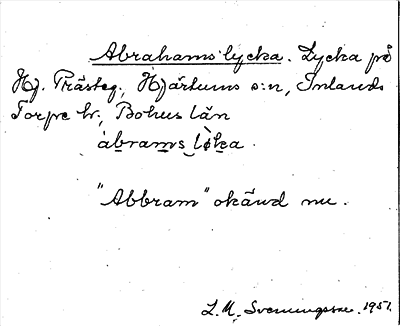 Abrahams lycka. Lycka på
Hj. Prästeg., Hjärtums s:n, Inlands
Torpe hr, Bohus län
àbrams lø̀ka.
"Abbram" okänd nu.
L. M. Svenungsson. 1951.